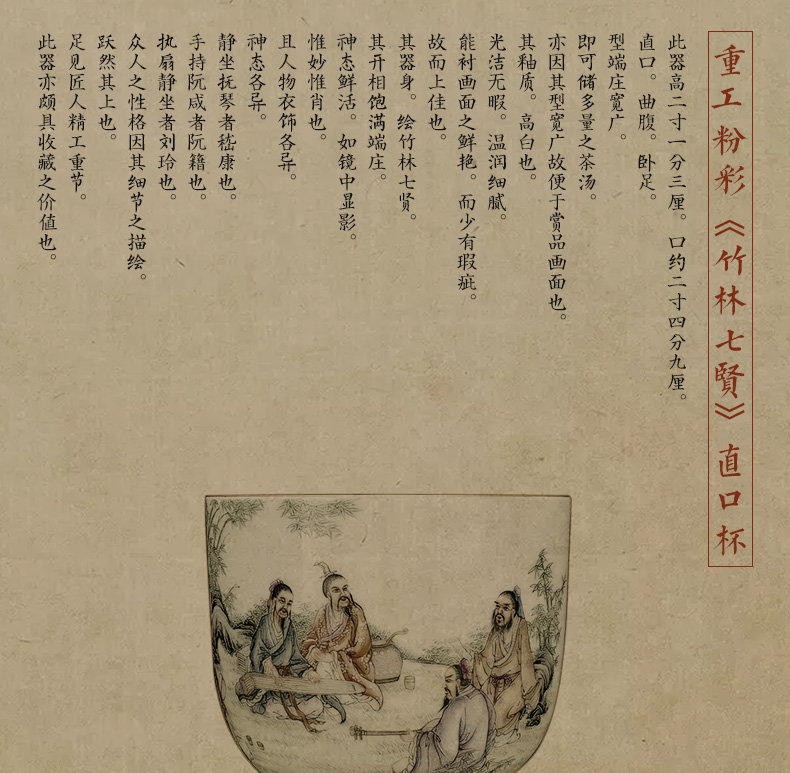 重工粉彩《竹林七賢》直口杯
此器高二寸一分三厘。口约二寸四分九厘。
直口。曲腹。卧足。
型端庄宽广。
即可储多量之茶汤。
亦因其型宽广故便于赏品画面也。
其釉质。高白也。
光洁无暇。温润细腻。
能衬画面之鲜艳。而少有瑕疵。
故而上佳也。
其器身。绘竹林七贤。
其开相饱满端庄。
神态鲜活。如镜中显影。
惟妙惟肖也。
且人物衣饰各异。
神态各异。
静坐抚琴者嵇康也。
手持阮咸者阮籍也。
执扇静坐者刘玲也。
众人之性格因其细节之描绘。
跃然其上也。
足见匠人精工重节。
此器亦颇具收藏之价值也。